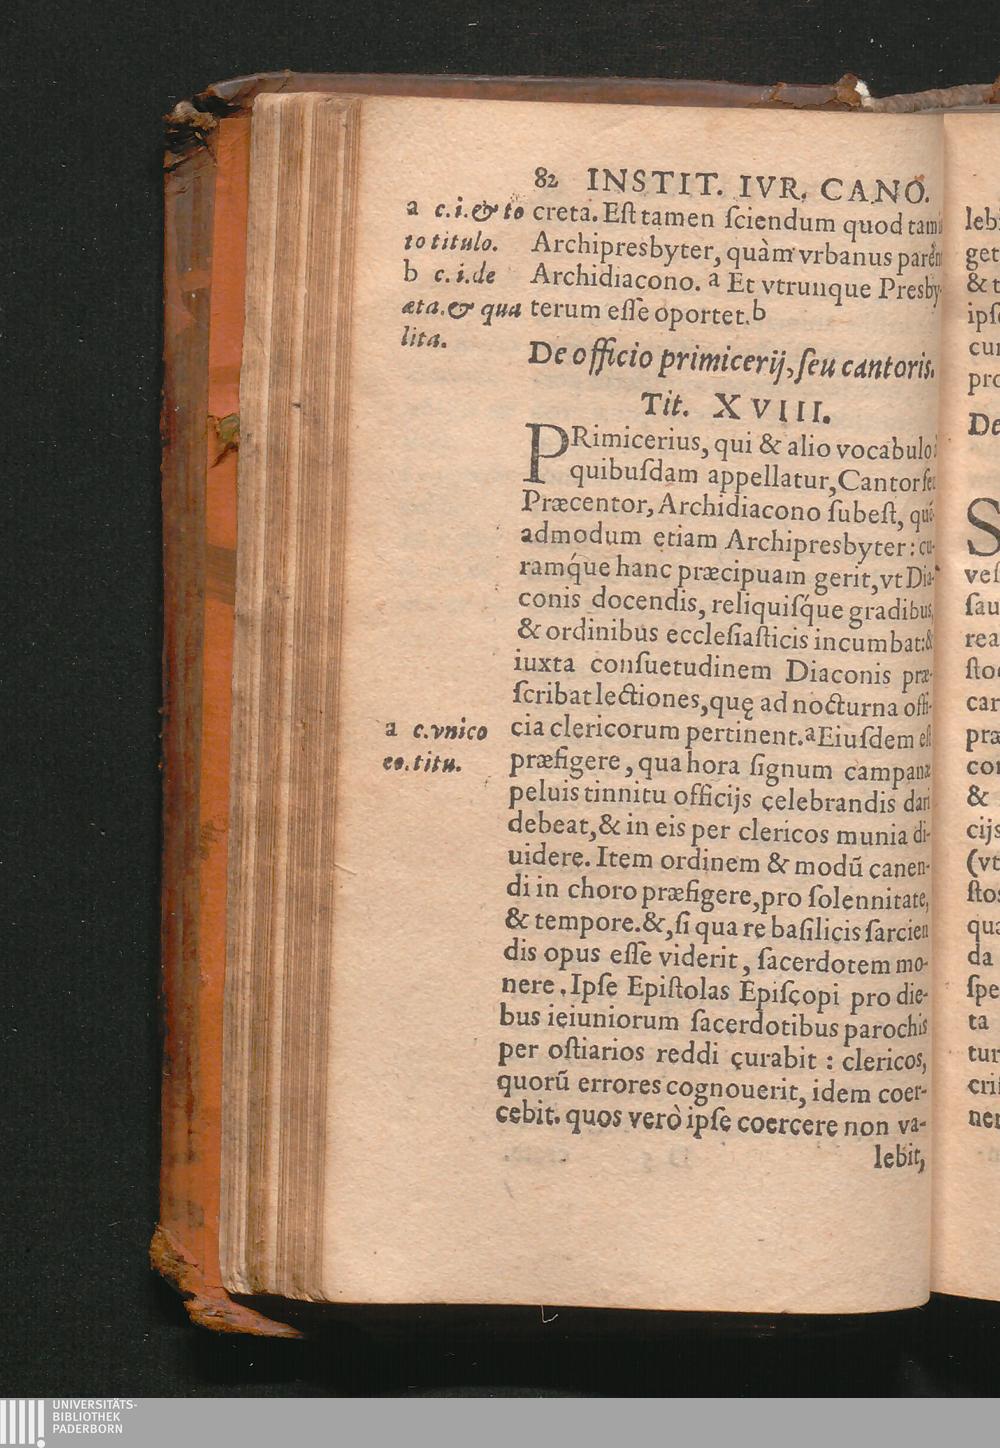 82 INSTIT. IVR. CANO.
a c.i.& to
to titulo.
b c.i.de
æta.& qua
lita.
creta. Est tamen ſciendum quod tam
Archipresbyter, quàm vrbanus parẽt
Archidiacono. a Et vtrunque Presby-
terum eſſe oportet.b
De officio primicerij, ſeu cantoris.
Tit. XVIII.
PRimicerius, qui & alio vocabulo à
quibuſdam appellatur, Cantor ſeu
Præcentor, Archidiacono ſubeſt, quẽ-
admodum etiam Archipresbyter: cu-
ramq́ue hanc præcipuam gerit, vt Dia-
conis docendis, reliquiſq́ue gradibus,
& ordinibus eccleſiaſticis incumbat: &
iuxta conſuetudinem Diaconis præ-
ſcribat lectiones, quę ad nocturna offi-
cia clericorum pertinent.a Eiuſdem eſt
a c.vnico
eo.titu.
præfigere, qua hora ſignum campanæ
peluis tinnitu officijs celebrandis dari
debeat, & in eis per clericos munia di-
uidere. Item ordinem & modũ canen-
di in choro præfigere, pro ſolennitate,
& tempore. &, ſi qua re baſilicis ſarcien
dis opus eſſe viderit, ſacerdotem mo-
nere. Ipſe Epiſtolas Epiſcopi pro die-
bus ieiuniorum ſacerdotibus parochis
per oſtiarios reddi curabit: clericos,
quorũ errores cognouerit, idem coer-
cebit. quos verò ipſe coercere non va-
lebit,
lebi
get
& t
ipſ
cui
pro
De
S
veſ
ſau
rea
ſto
car
præ
co
&
cijs
(vt
ſtos
qua
da
ſpe
ta
tur
criſ
ner
UNIVERSITÄTS-
BIBLIOTHEK
PADERBORN